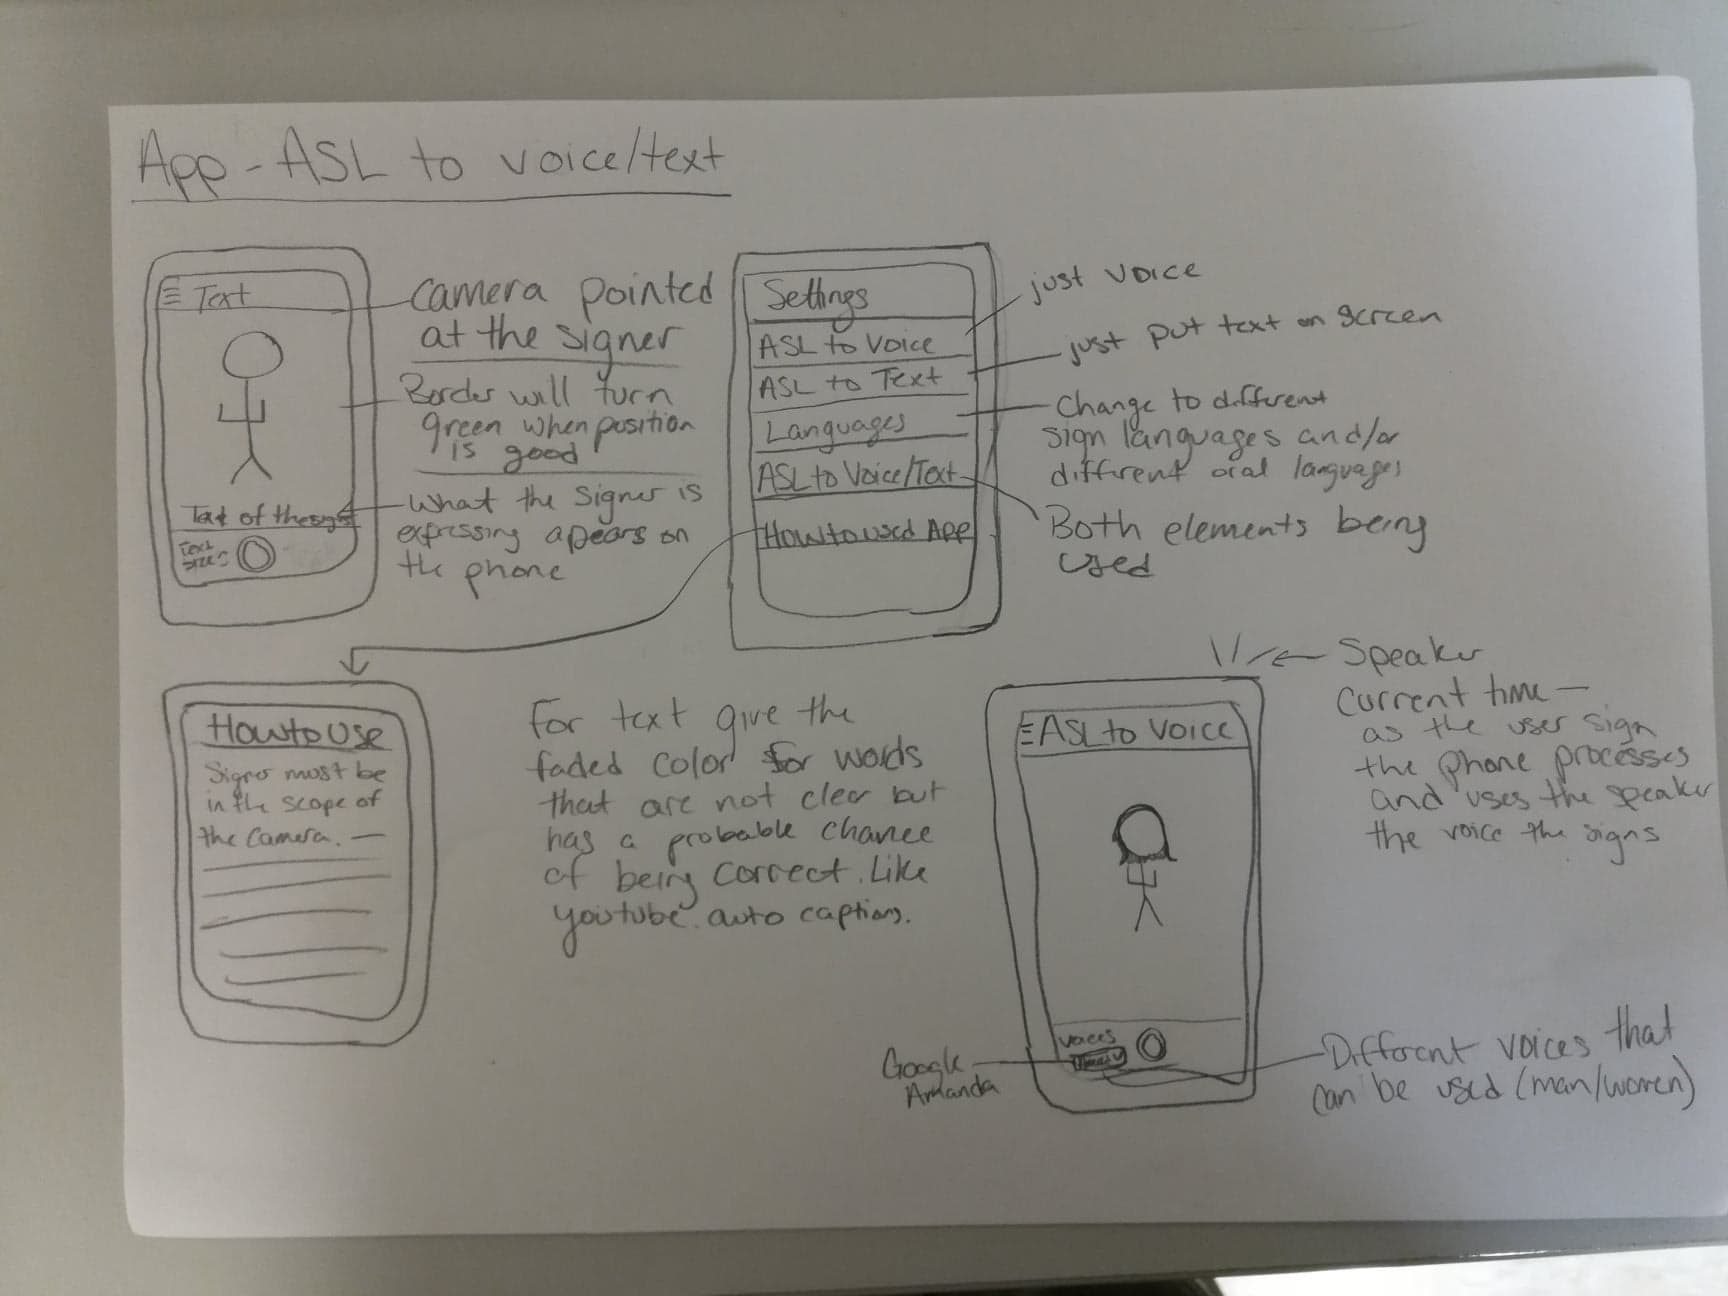 App - ASL to voice/text
Text
Camera pointed
at the signer
Border will turn
green when position
is good
What the signer is
expressing apears on
the phone
Text of the sign
Text
size:
Settings
ASL to Voice
ASL to Text
Languages
ASL to Voice/Text
How to used App
just voice
just put text on screen
Change to different
sign languages and/or
different oral languages
Both elements being
used
How to Use
Signer must be
in the scope of
the camera. —
For text give the
faded color for words
that are not clear but
has a probable chance
of being correct. Like
youtube auto captions.
ASL to Voice
Voices
Google
Amanda
Speaker
Current time —
as the user sign
the phone processes
and uses the speaker
the voice the signs
Different voices that
can be used (man/women)